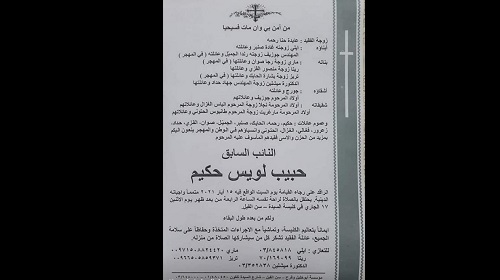 من آمن بي وان مات فسيحيا
زوجة الفقيد : عنيدة حنا رحمه
أبناؤه : ايلي زوجته غادة صقير وعائلته
المهندس جوزيف زوجته رندا الجميل وعائلته ( في المهجر )
بناته : ماري زوجة رجا صوان وعائلتها ( في المهجر )
ريتا زوجة منصور القزي وعائلتها
تريز زوجة بشارة الحايك وعائلتها ( في المهجر )
الدكتورة ميشلين زوجة المهندس جهاد حداد وعائلتها
أشقاؤه : جورج وعائلته
أولاد المرحوم جوزيف وعائلاتهم
شقيقاته : أولاد المرحومة نجلا زوجة المرحوم الياس الغزال وعائلاتهم
أولاد المرحومة مارغريت زوجة المرحوم طانيوس الحتوني وعائلاتهم
وعموم عائلات : حكيم، رحمه، الحايك، صقير، الجميل، صوان، القزي، حداد،
زعرور، فغالي، الغزال، الحتوني وانسباؤهم في الوطن والمهجر ينعون اليكم
بمزيد من الحزن والاسى فقيدهم المأسوف عليه المرحوم
النائب السابق
حبيب لويس حكيم
الراقد على رجاء القيامة يوم السبت الواقع فيه ١٥ أيار ٢٠٢١ متمماً واجباته
الدينية. يحتفل بالصلاة لراحة نفسه الساعة الرابعة من بعد ظهر يوم الاثنين
١٧ الجاري في كنيسة السيدة - سن الفيل.
ولكم من بعده طول البقاء
ايماناً بتعاليم الكنيسة، وتماشياً مع الاجراءات المتخذة وحفاظاً على سلامة
الجميع، عائلة الفقيد تشكر كل من سيشاركها الصلاة من منزله.
للتعازي : ايلي ٠٣/٨٤٥٨١٨ ماري
ريتا تريز
الدكتورة ميشلين